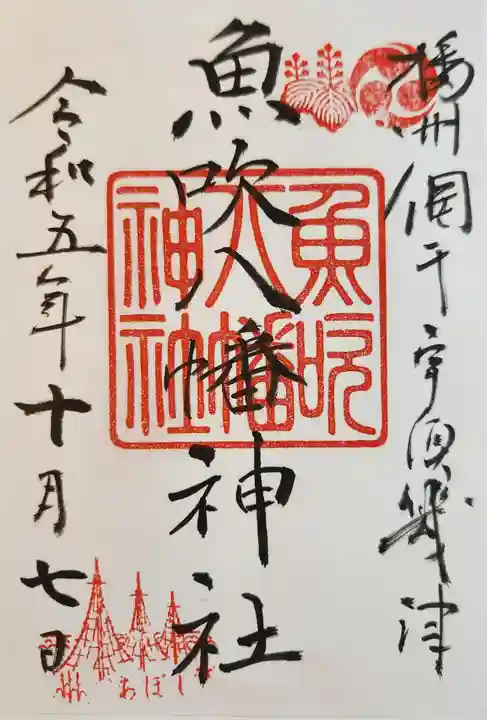 播州網干宇須幾津
魚吹八幡神社
魚吹
八幡
神社
令和五年十月七日
あぼし